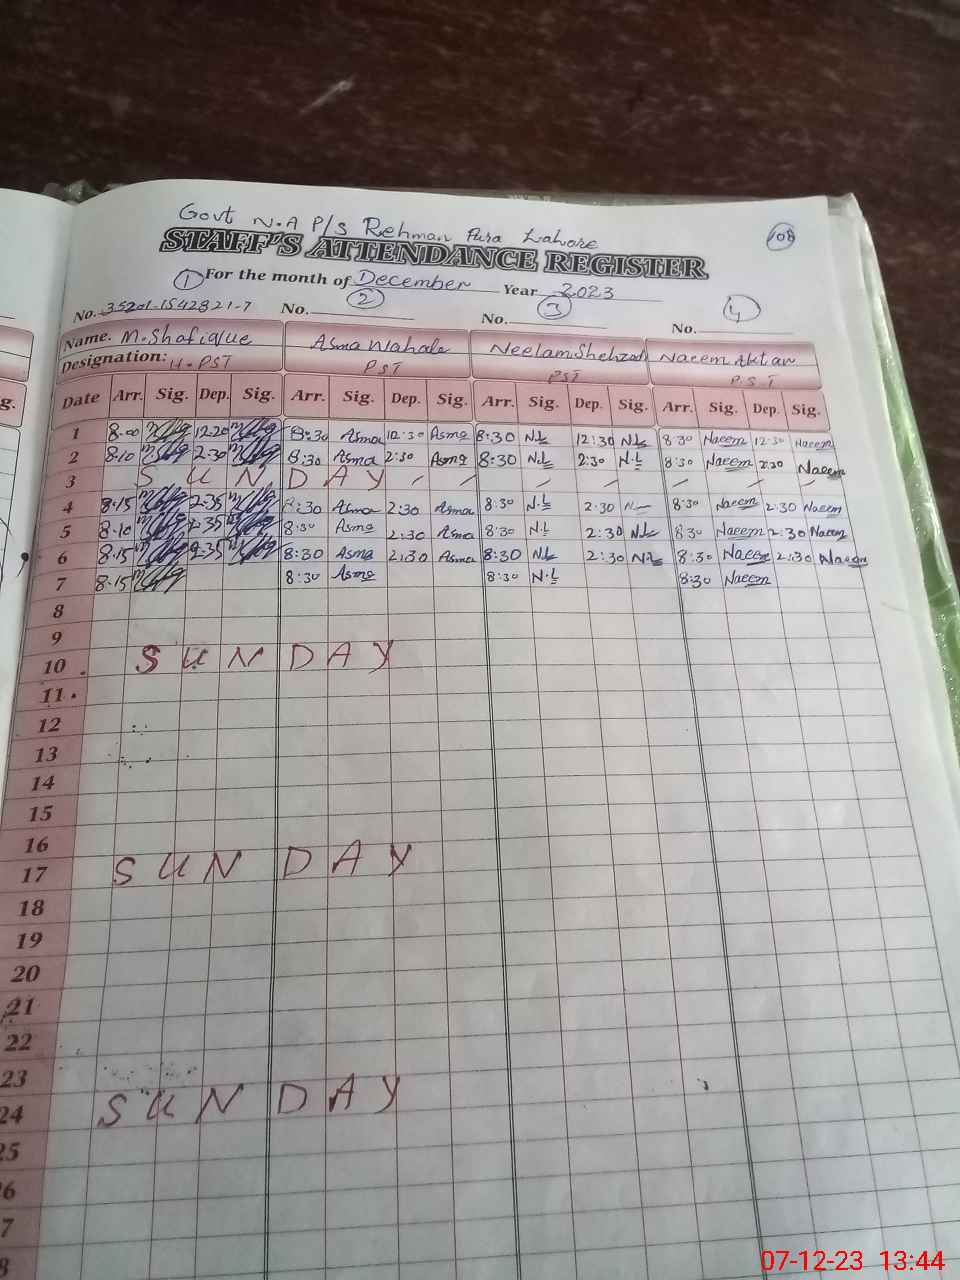 Govt N.A P/S Rehman Pura Lahore
108
STAFF'S ATTENDANCE REGISTER
1 For the month of December Year 2023
2 3 4
No. 35201-1542821-7 No. No. No.
Name. M. Shafique Asma Wahab Neelam Shehzad Naeem Aktar
Designation: H.PST PST PST P.S.T
g. Date Arr. Sig. Dep. Sig. Arr. Sig. Dep. Sig. Arr. Sig. Dep. Sig. Arr. Sig. Dep. Sig.
1 8-00 12-20 8:30 Asma 12:30 Asma 8:30 N.L 12:30 N.L 8:30 Naeem 12-30 Naeem
2 8-10 2-30 8:30 Asma 2:30 Asma 8:30 N.L 2:30 N.L 8:30 Naeem 2:30 Naeem
3 S U N D A Y
4 8-15 2-35 8:30 Asma 2:30 Asma 8:30 N.L 2:30 8:30 Naeem 2:30 Naeem
5 8-10 2-35 8:30 Asma 2:30 Asma 8:30 N.L 2:30 N.L 8:30 Naeem 2:30 Naeem
6 8-15 2-35 8:30 Asma 2:30 Asma 8:30 N.L 2:30 N.L 8:30 Naeem 2:30 Naeem
7 8-15 8:30 Asma 8:30 N.L 8:30 Naeem
8
9
10 S U N D A Y
11
12
13
14
15
16
17 S U N D A Y
18
19
20
21
22
23
24 S U N D A Y
25
6
7
8
07-12-23 13:44